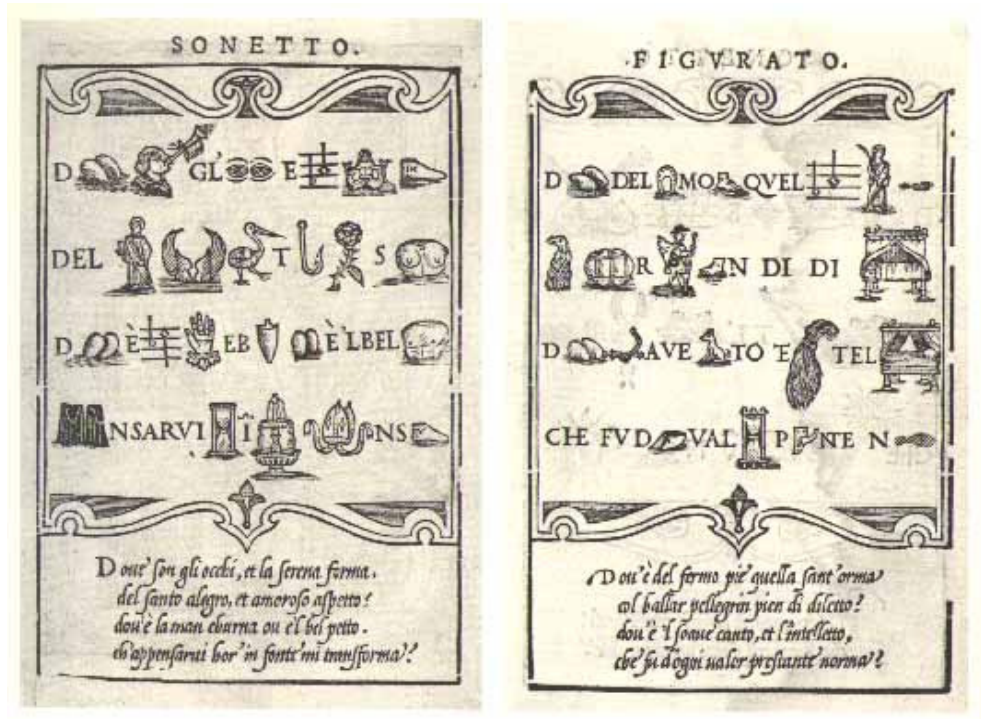 SONETTO.
D GL' E
DEL T S
D È EB È L BEL
NSARVI Ī NS
Doue son gli occhi, et la serena forma.
del santo alegro, et amoroso aspetto?
dou'è la man eburna ou'è'l bel petto.
ch'appensarui hor' in fonte mi transforma?
.FIGVRATO.
D DEL MO QVEL
R N DI DI
D AVE TO E TEL
CHE FV D VAL P NTE N
Dou'è del fermo piè quella sant'orma
col ballar pellegrin pien di diletto?
dou'è 'l soaue canto, et l'intelletto,
che fu d'ogni ualor prestante norma?